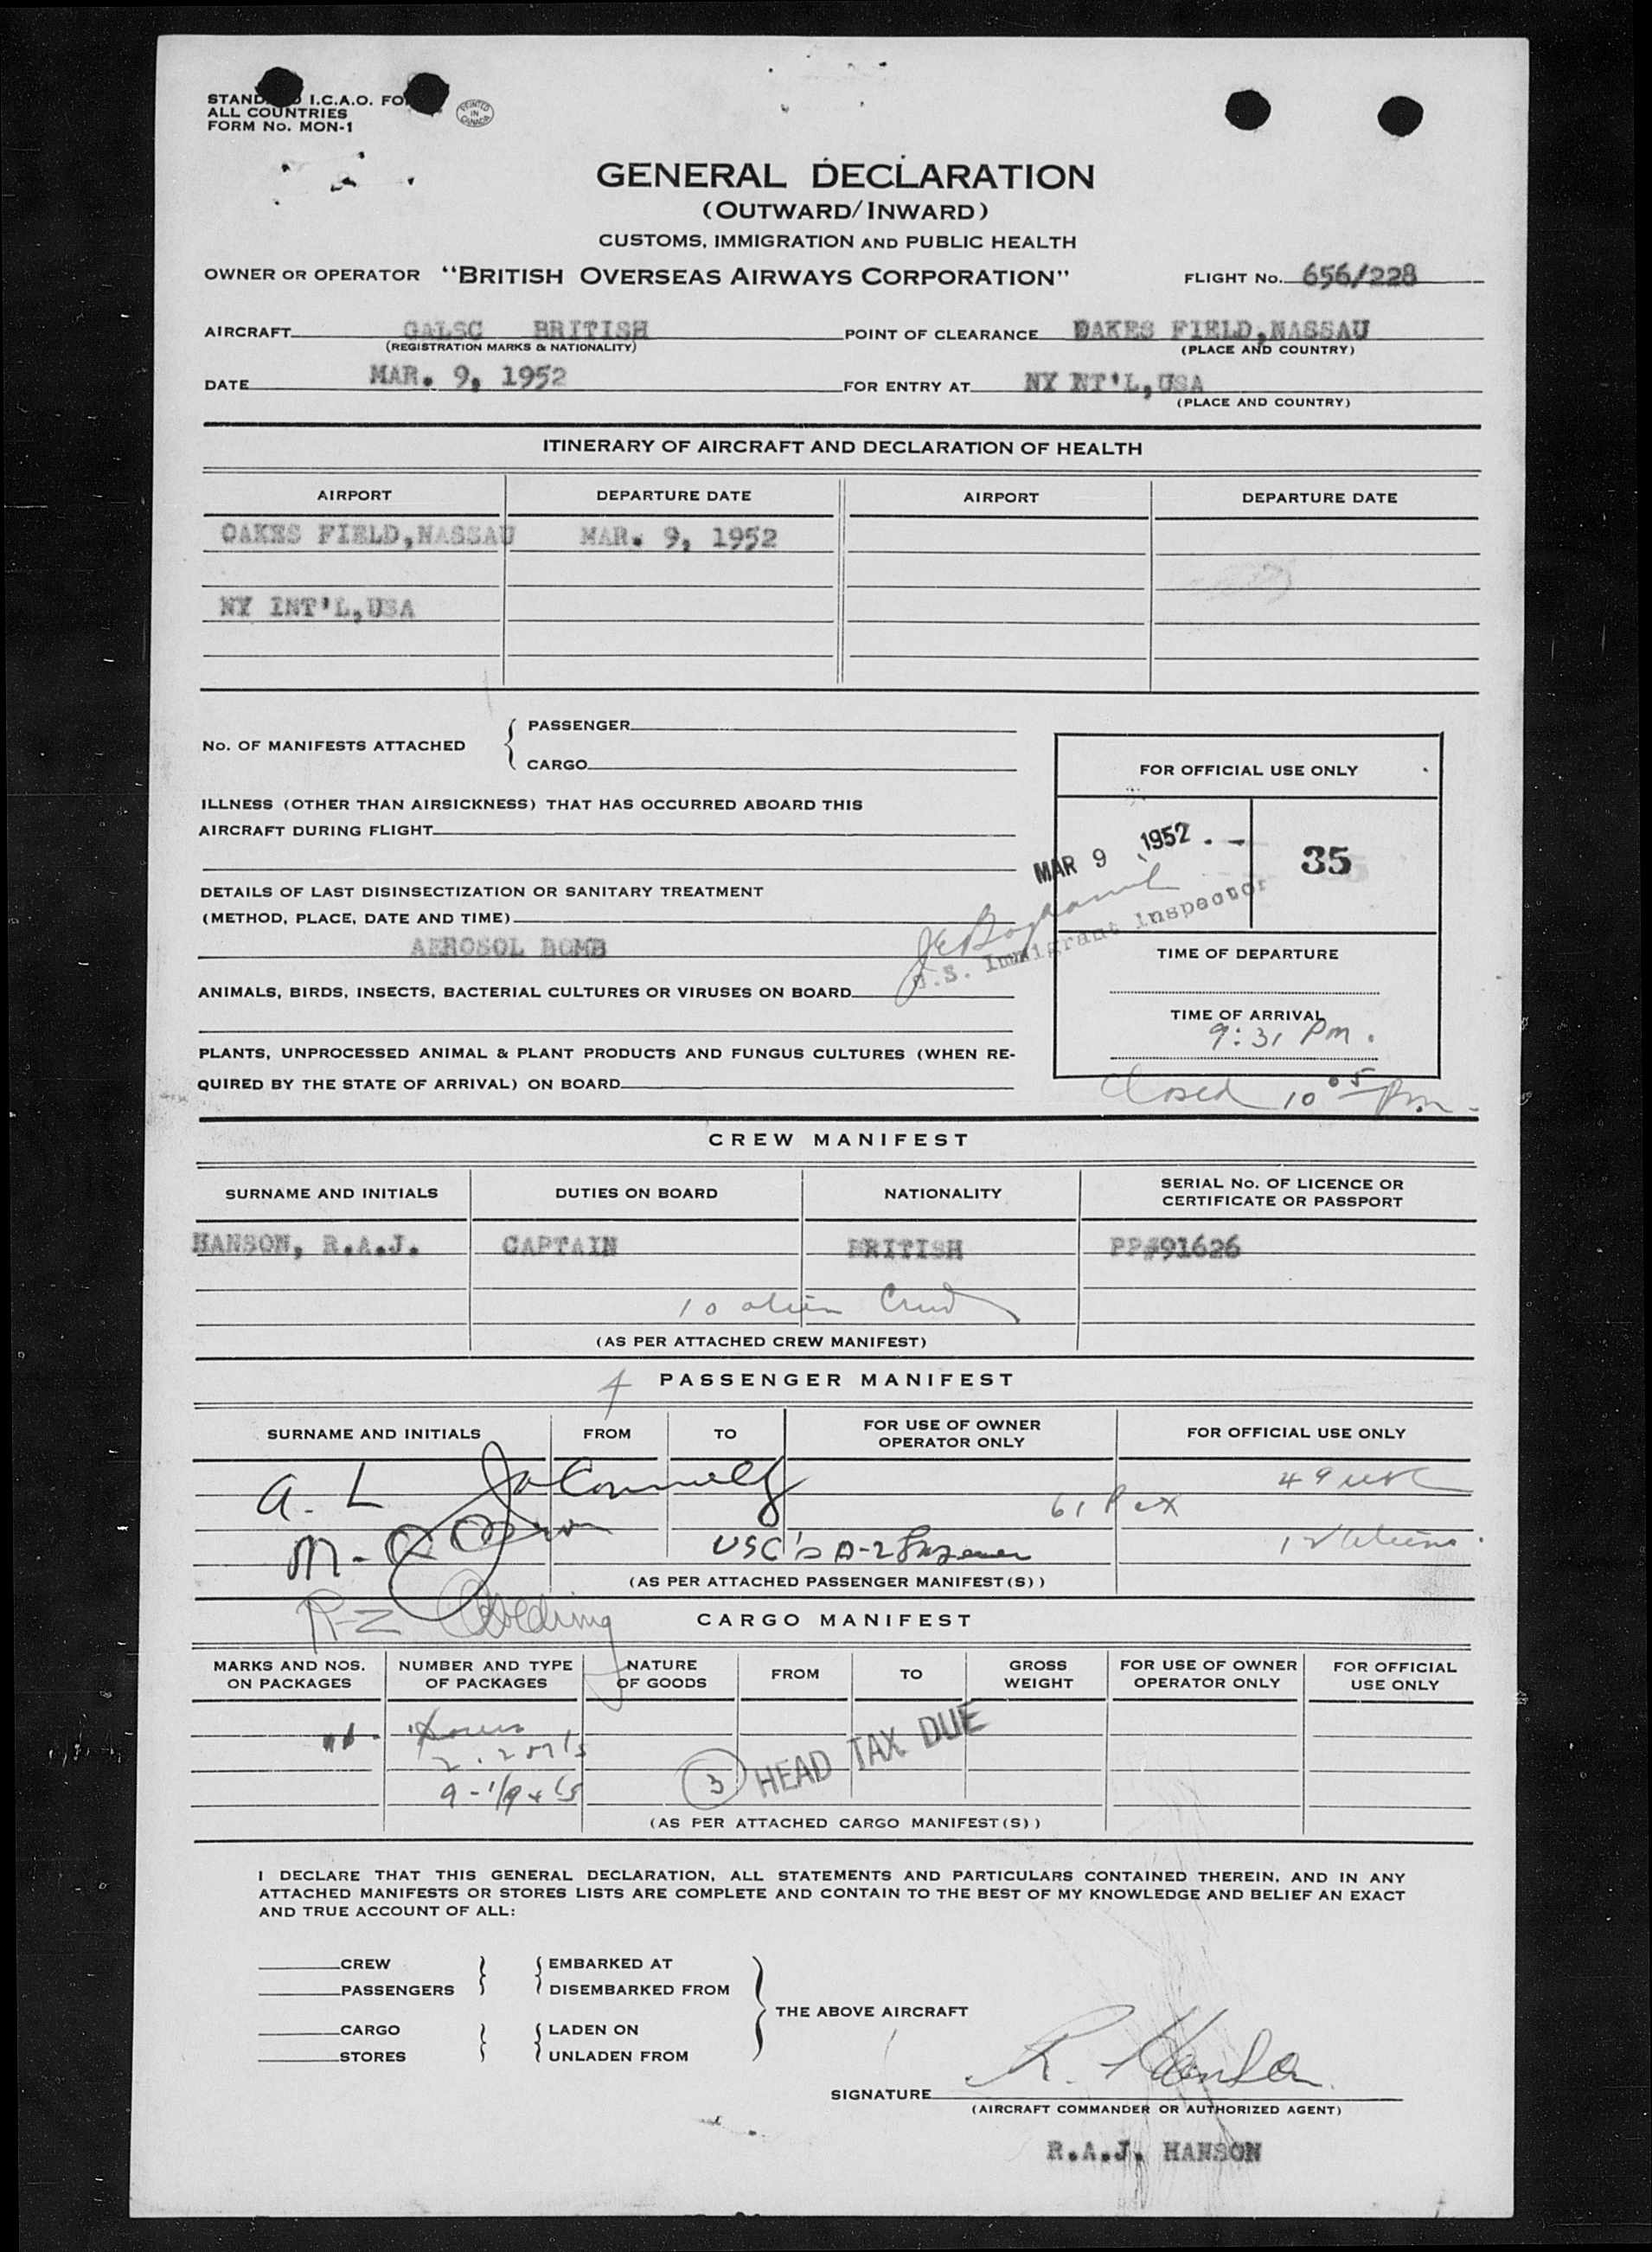 I.C.A.O.
ALL COUNTRIES
FORM No. MON-1
PRINTED IN CANADA
GENERAL DECLARATION
(OUTWARD/INWARD)
CUSTOMS, IMMIGRATION AND PUBLIC HEALTH
OWNER OR OPERATOR "BRITISH OVERSEAS AIRWAYS CORPORATION" FLIGHT No. 656/228
AIRCRAFT GALSC BRITISH POINT OF CLEARANCE OAKES FIELD,NASSAU
(REGISTRATION MARKS & NATIONALITY) (PLACE AND COUNTRY)
DATE MAR. 9, 1952 FOR ENTRY AT NY NT'L,USA
(PLACE AND COUNTRY)
ITINERARY OF AIRCRAFT AND DECLARATION OF HEALTH
AIRPORT DEPARTURE DATE AIRPORT DEPARTURE DATE
OAKES FIELD,NASSAU MAR. 9, 1952
NY INT'L,USA
No. OF MANIFESTS ATTACHED
PASSENGER
CARGO
FOR OFFICIAL USE ONLY
ILLNESS (OTHER THAN AIRSICKNESS) THAT HAS OCCURRED ABOARD THIS
AIRCRAFT DURING FLIGHT
MAR 9 1952
35
DETAILS OF LAST DISINSECTIZATION OR SANITARY TREATMENT
(METHOD, PLACE, DATE AND TIME)
AEROSOL BOMB
U.S. Immigrant Inspector
TIME OF DEPARTURE
ANIMALS, BIRDS, INSECTS, BACTERIAL CULTURES OR VIRUSES ON BOARD
TIME OF ARRIVAL
9:31 Pm.
PLANTS, UNPROCESSED ANIMAL & PLANT PRODUCTS AND FUNGUS CULTURES (WHEN RE-
QUIRED BY THE STATE OF ARRIVAL) ON BOARD
Closed 10 05 Pm.
CREW MANIFEST
SURNAME AND INITIALS DUTIES ON BOARD NATIONALITY SERIAL No. OF LICENCE OR
CERTIFICATE OR PASSPORT
HANSON, R.A.J. CAPTAIN BRITISH PP#91626
10 alien Crew
(AS PER ATTACHED CREW MANIFEST)
4 PASSENGER MANIFEST
SURNAME AND INITIALS FROM TO FOR USE OF OWNER
OPERATOR ONLY FOR OFFICIAL USE ONLY
A. L 49 USC
61 Pax
M. USC's A-2 12 Aliens
(AS PER ATTACHED PASSENGER MANIFEST(S))
R-Z
CARGO MANIFEST
MARKS AND NOS.
ON PACKAGES
NUMBER AND TYPE
OF PACKAGES
NATURE
OF GOODS
FROM
TO
GROSS
WEIGHT
FOR USE OF OWNER
OPERATOR ONLY
FOR OFFICIAL
USE ONLY
3 HEAD TAX DUE
(AS PER ATTACHED CARGO MANIFEST(S))
I DECLARE THAT THIS GENERAL DECLARATION, ALL STATEMENTS AND PARTICULARS CONTAINED THEREIN, AND IN ANY
ATTACHED MANIFESTS OR STORES LISTS ARE COMPLETE AND CONTAIN TO THE BEST OF MY KNOWLEDGE AND BELIEF AN EXACT
AND TRUE ACCOUNT OF ALL:
CREW EMBARKED AT
PASSENGERS DISEMBARKED FROM
THE ABOVE AIRCRAFT
CARGO LADEN ON
STORES UNLADEN FROM
R. Hanson
SIGNATURE
(AIRCRAFT COMMANDER OR AUTHORIZED AGENT)
R.A.J. HANSON